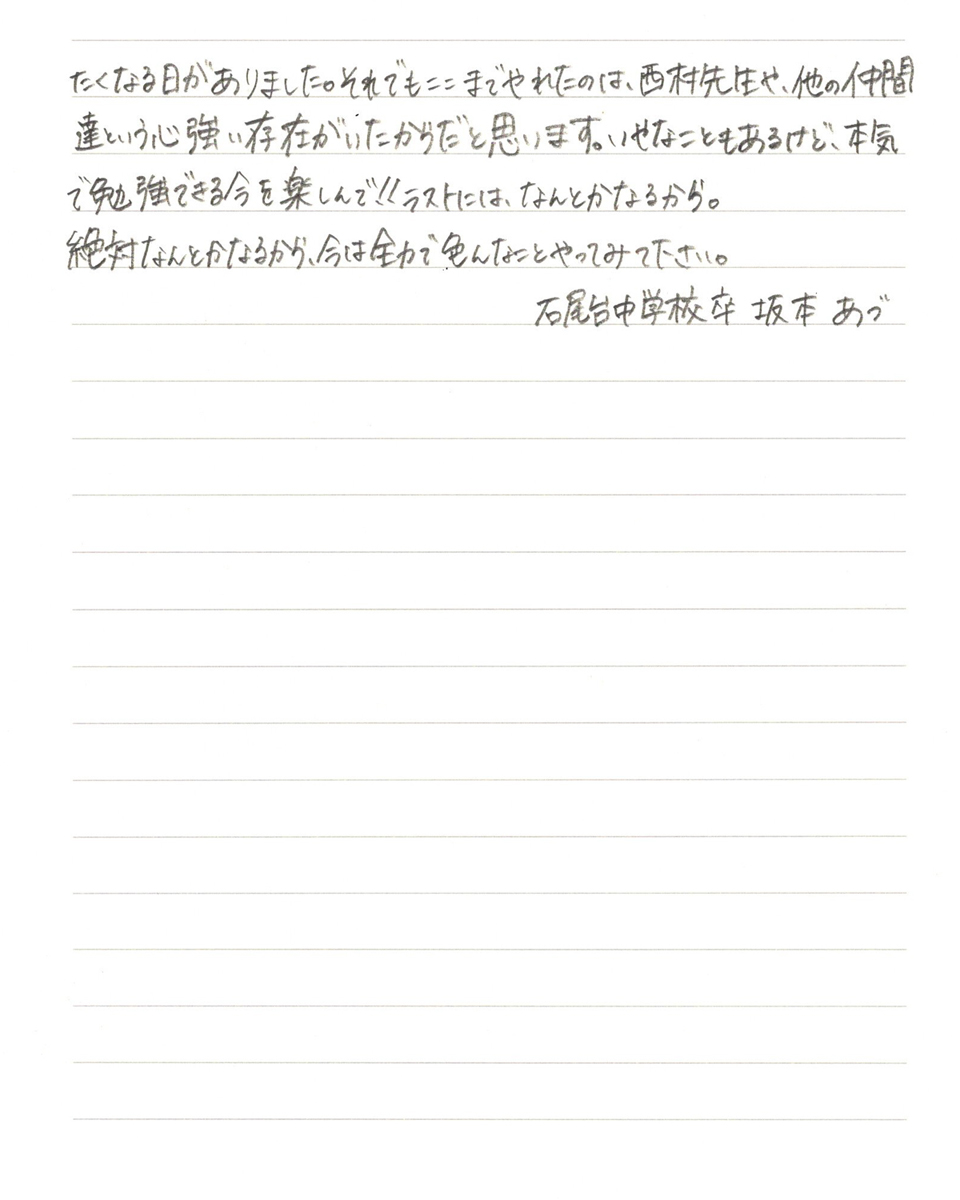 たくなる日がありました。それでもここまでやれたのは、西村先生や、他の仲間
達という心強い存在がいたからだと思います。いやなこともあるけど、本気
で勉強できる今を楽しんで!!ラストには、なんとかなるから。
絶対なんとかなるから、今は全力で色んなことやってみて下さい。
石尾台中学校卒 坂本 あづ